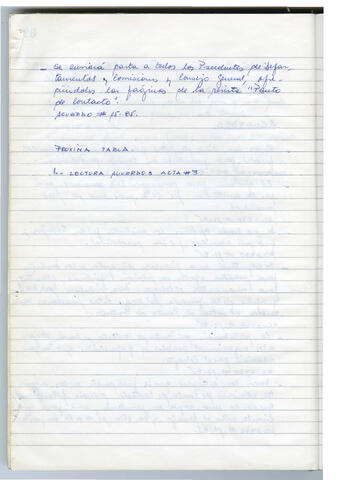 _ Se enviará carta a todos los Presidentes de Depar-
tamentos y Comisiones y Consejo General, ofre-
ciéndoles las páginas de la revista "Punto
de Contacto".
ACUERDO # 15-85.
PROXIMA TABLA.
1.- LECTURA ACUERDOS ACTA #3